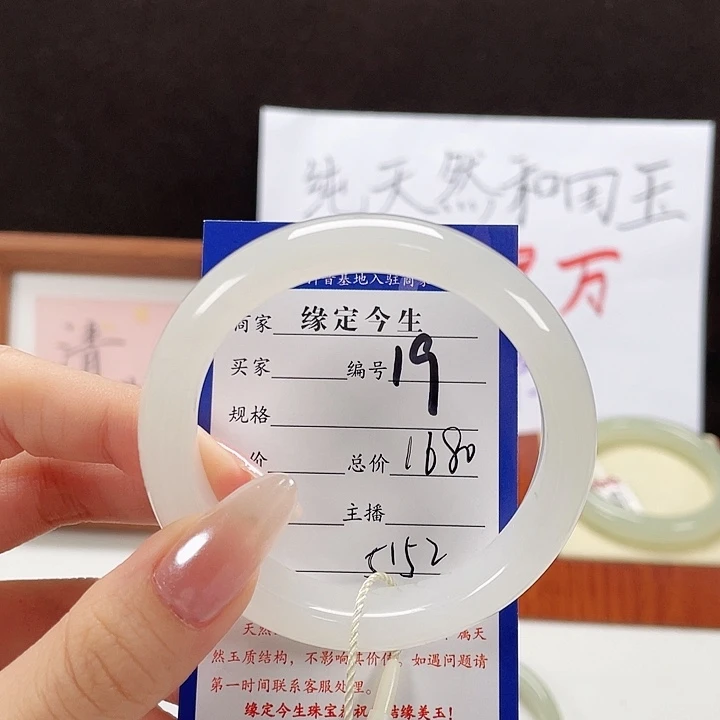 纯天然和田玉
万
清
基地入驻商家
商家 缘定今生
买家 编号 19
规格
价 总价 1680
主播
5152
天然 属天
然玉质结构，不影响其价值。如遇问题请
第一时间联系客服处理。
缘定今生珠宝 祝 结缘美玉！